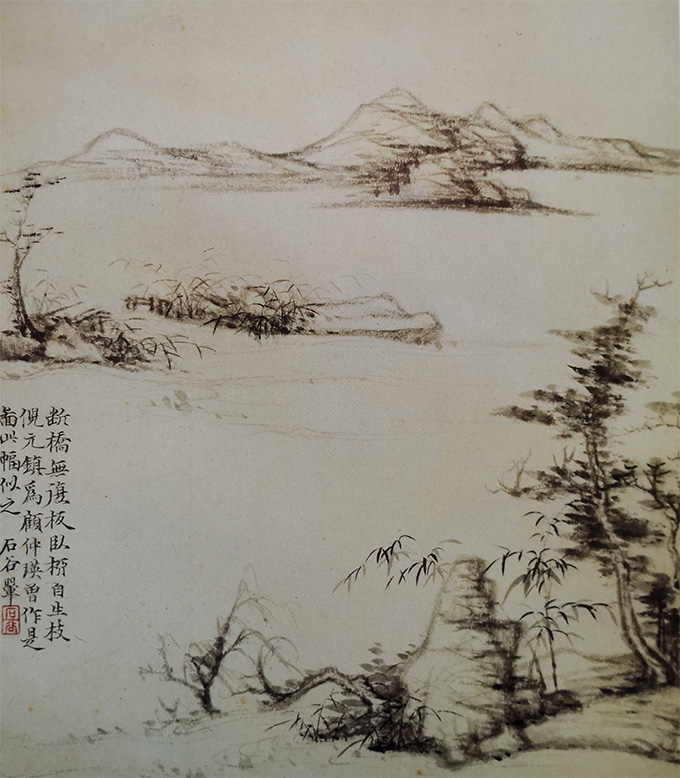 断橋無復板臥栁自生枝
倪元鎮爲顧仲瑛曽作是
啚此幅似之 石谷翬
石谷